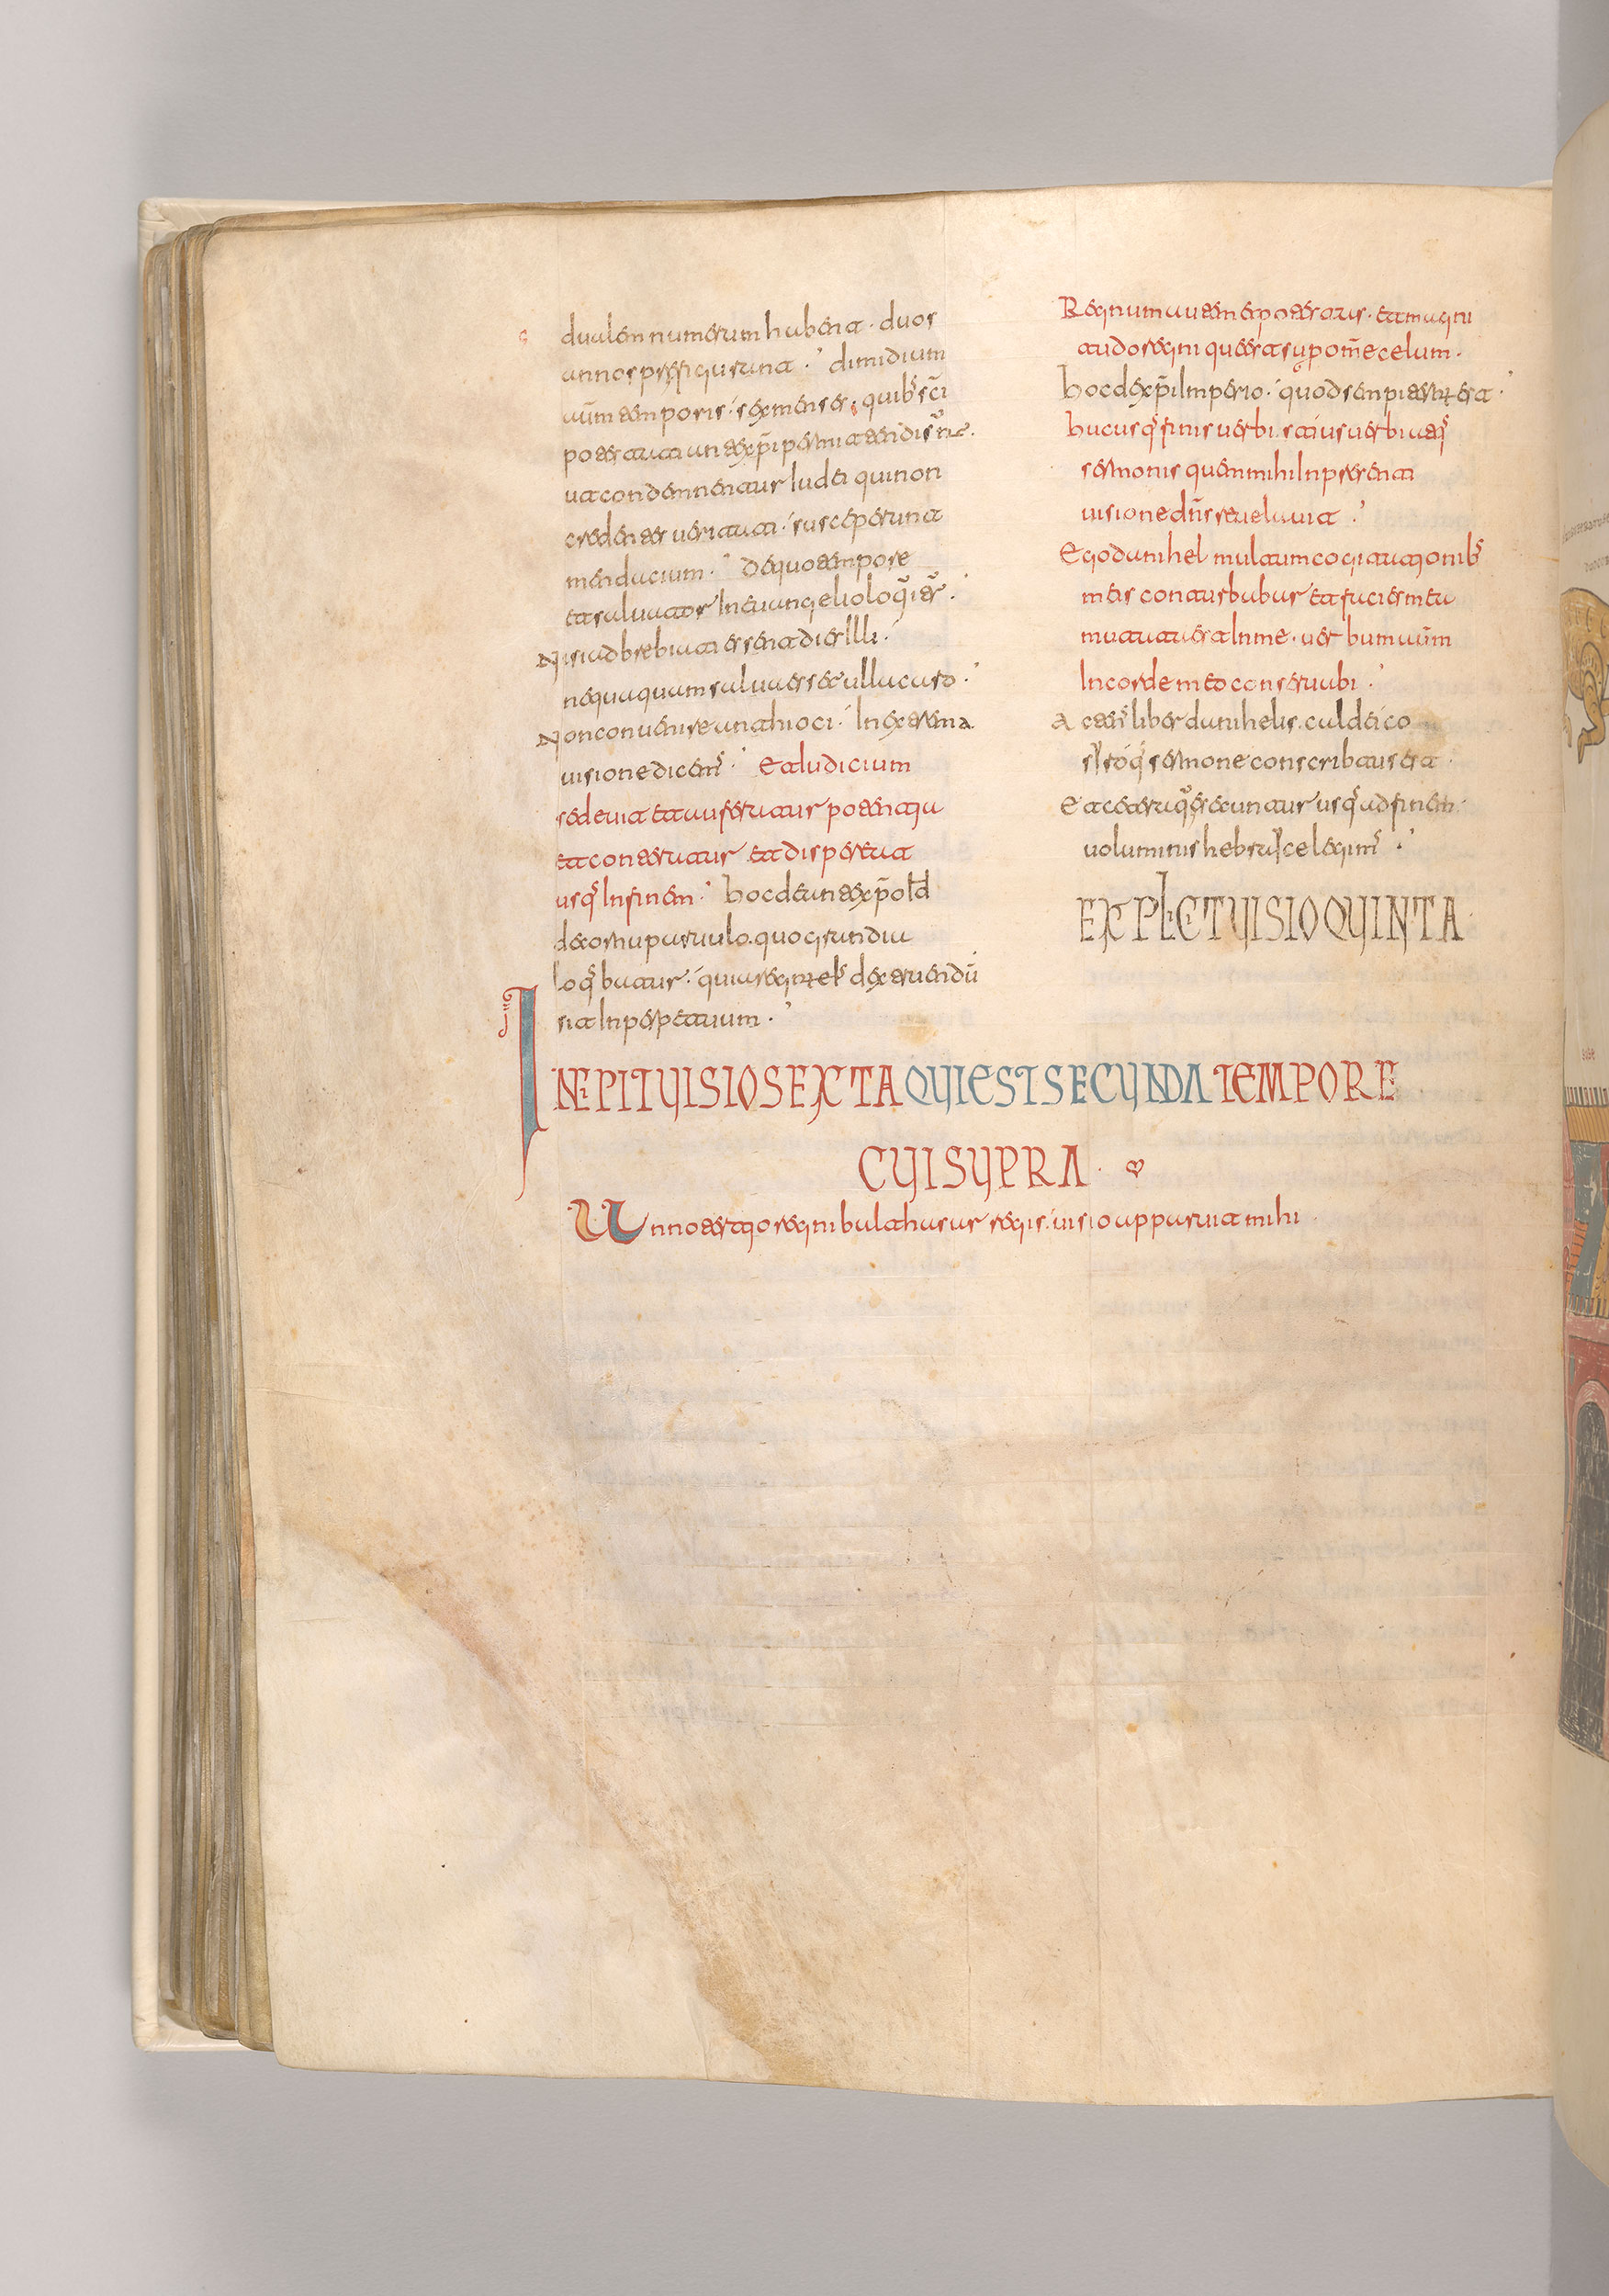 dualem numerum habent. duos
annos prefigurant. dimidium
aūm temporis. sex menses. quibs sc̄i
potestati antexp̄i permittendi s̄
ut condemnentur Iudei qui non
credentes ueritati. susceperunt
mendacium. De quo tempore
et saluator In euangelio loqitr.
Nisi adbrebiati essent dies Illi.
nequaquam salua esset ulla caro.
Non conuenire antioci. In extrema
uisione dicem. Et Iudicium
sedeuit et auferatur potentia
et conteratur et dispereat
usq In finem. hoc de antexp̄o Id
de cornu paruulo. quo grandia
loqbatur.
sit In perpetuum.
Regnum autem et potestatis. et magni
tudo regni que est supom̄e celum.
hoc dexp̄i Imperio. quod sempiternū est.
hucusq finis uerbi. scilius uerbi atq
sermonis quem mihi In presenti
uisione dn̄s reuelauit.
Ego danihel multum cogitationibs
meis conturbabar et facies mea
mutata est In me. uerbum aūm
In corde meo conseruabi.
Acten liber danihelis. caldeico
sirioq sermone conscribtus est
Et cetera q secuntur usq ad finem
uoluminis hebraice legim.
EXPLCT UISIO QUINTA
INCPIT UISIO SEXTA QUIEST SECUNDA TEMPORE
CUI SUPRA.
Anno tertio regni balthasar regis. uisio apparuit mihi